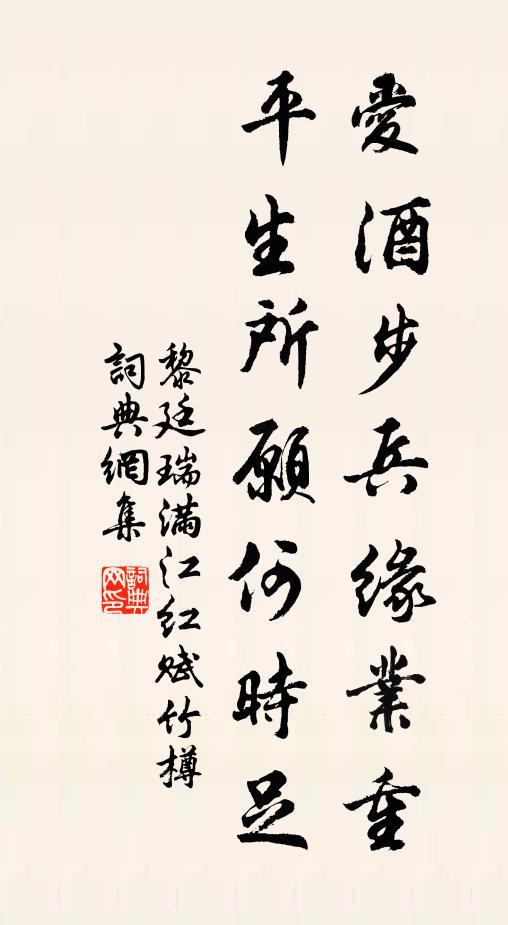 愛酒步兵緣業重
平生所願何時足
黎廷瑞滿江紅賦竹樽
詞典網集
詞典
网印